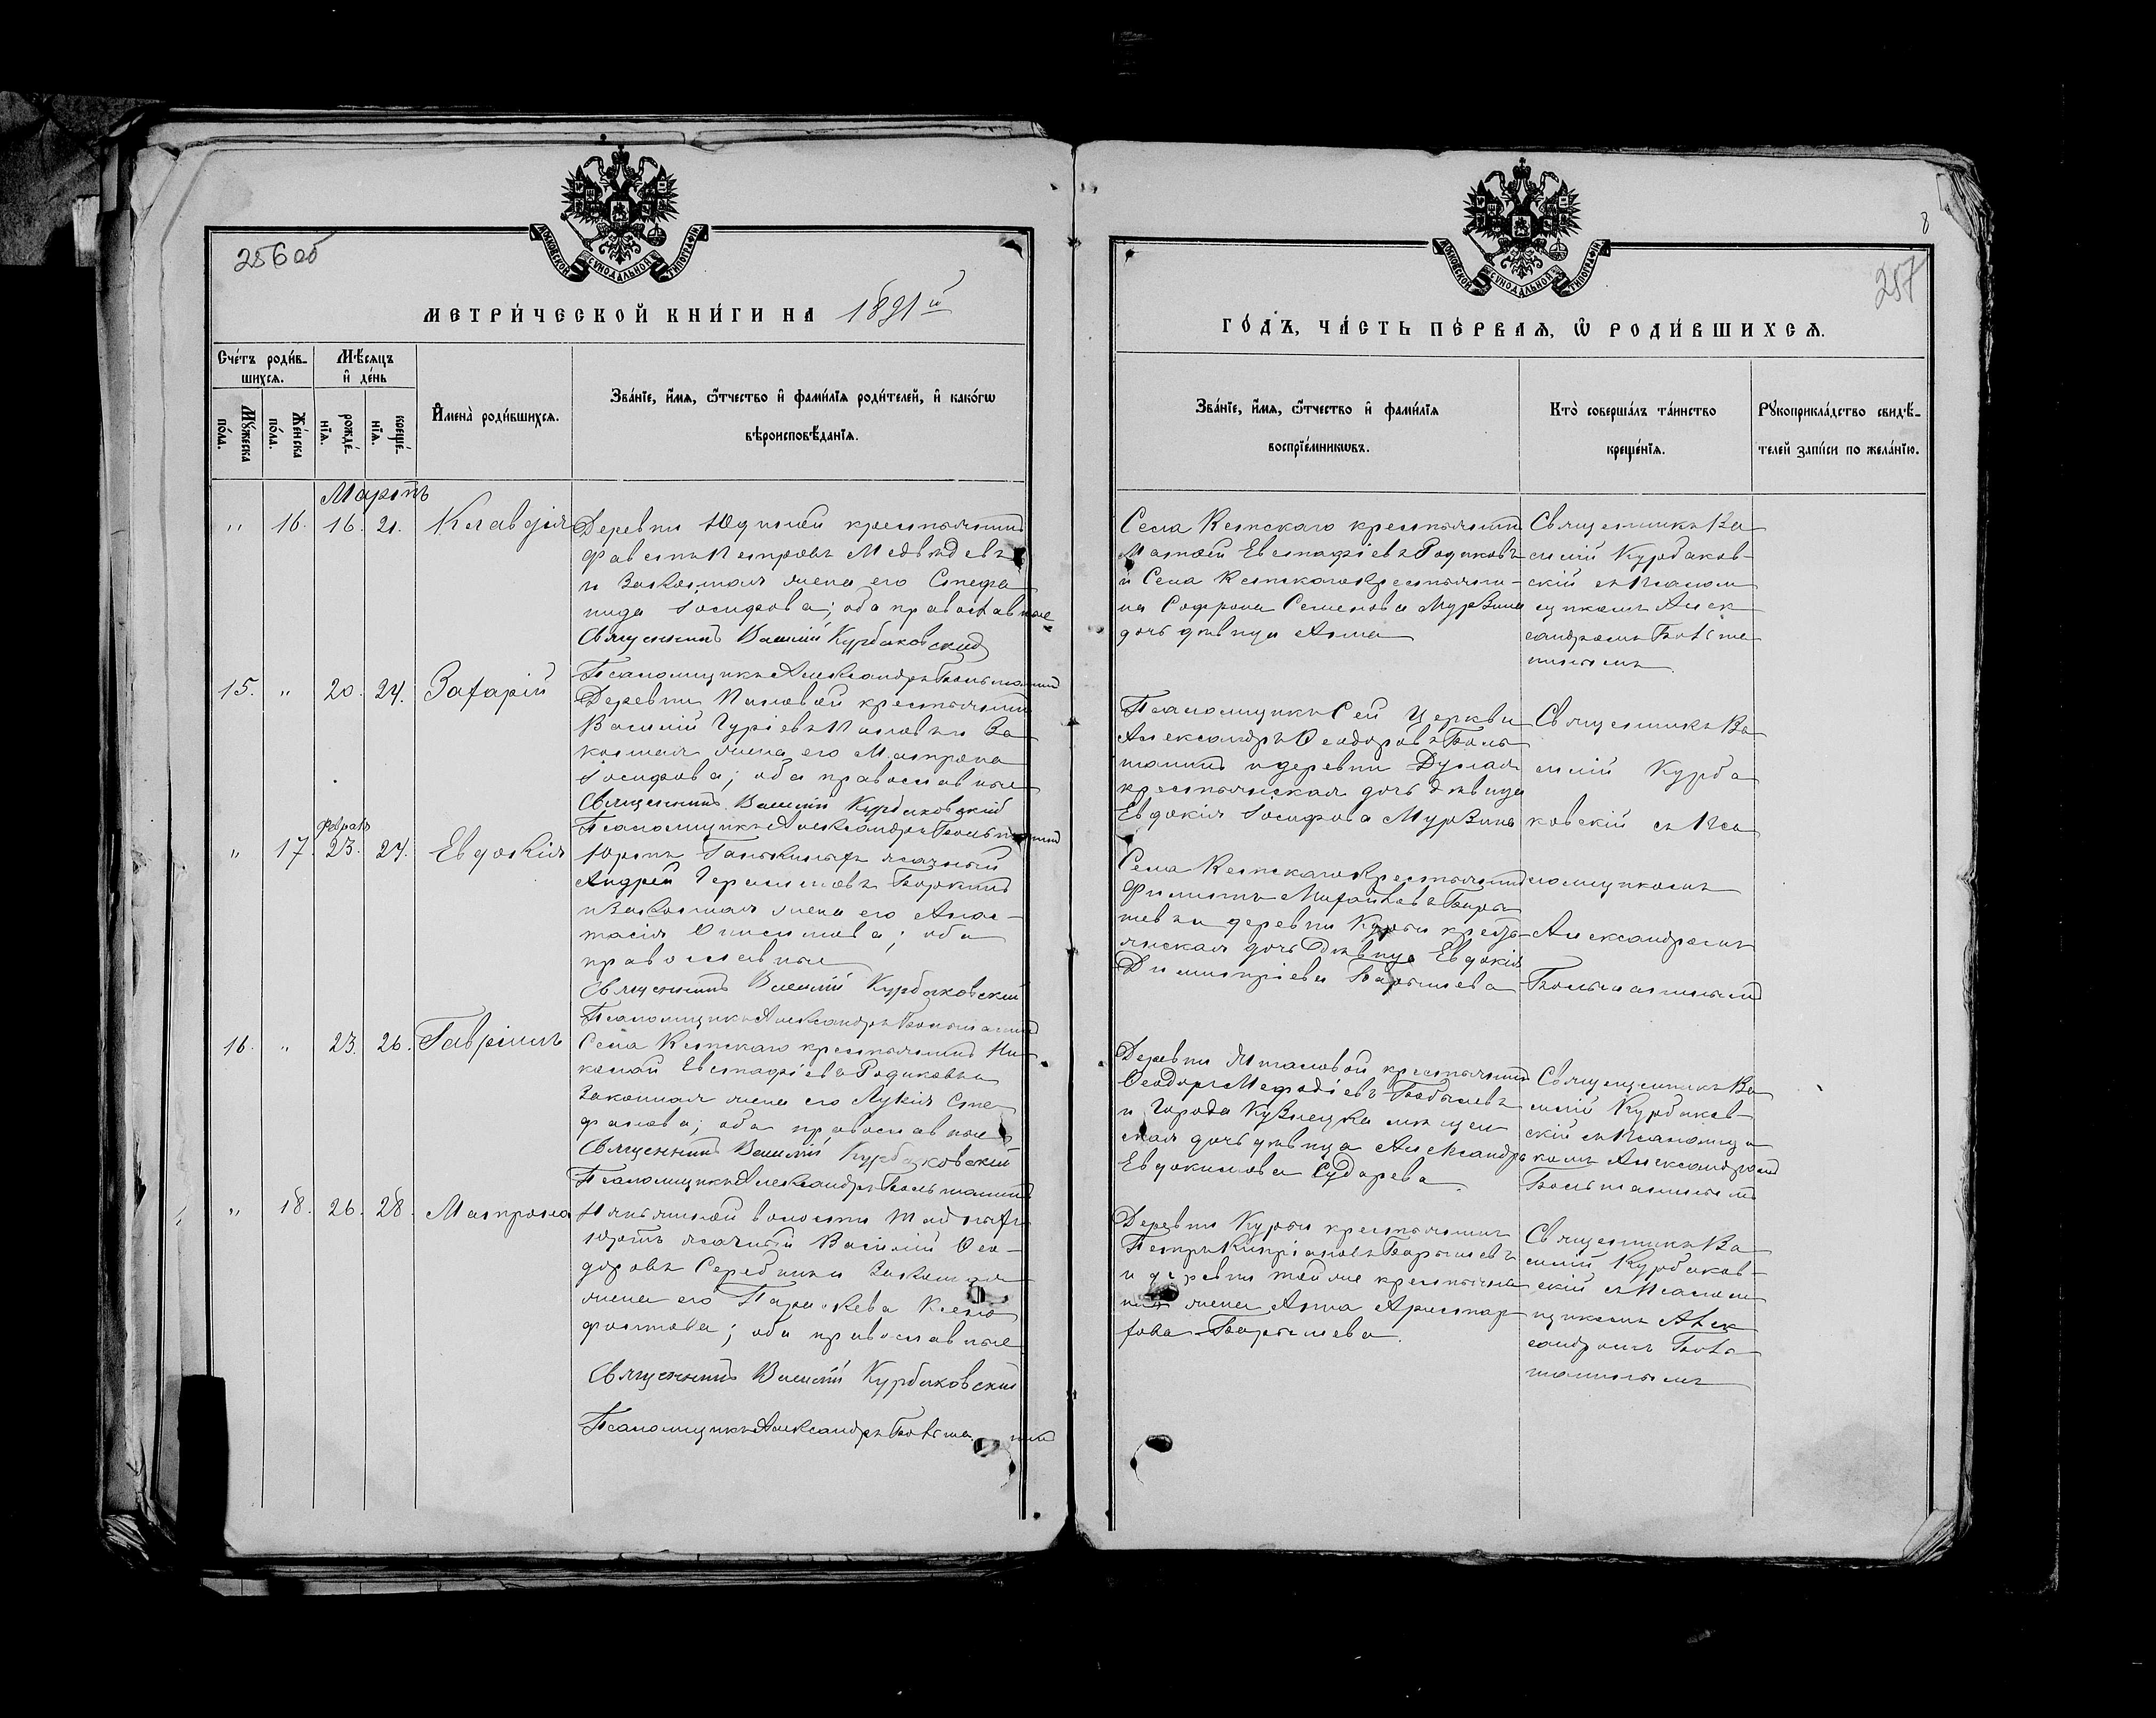 МОСКОВСКОЙ СУНОДАЛЬНОЙ ТИПОГРАФІИ
256об
МЕТРИ́ЧЕСКОЙ КНИ́ГИ НА 1891й
Сче́тъ роди́в-
шихсѧ.
Мѣ́сѧцъ
и҆ де́нь
Мꙋ́жеска
по́ла.
Же́нска
по́ла.
рожде́-
нїѧ.
креще́-
нїѧ.
И҆мена̀ роди́вшихсѧ.
Зва́нїе, и҆́мѧ, ѻ҆́тчество и҆ фами́лїѧ роди́телей, и҆ како́гѡ
вѣроисповѣ́данїѧ.
Мартъ
" 16. 16. 21. Клавдія
Деревни Юдиной крестьянинъ
Фавстъ Петровъ Медвѣдевъ
и законная жена его Степа
нида Іосифова; оба православные
Священникъ Василій Курбаковскій
Псаломщикъ Александръ Большанинъ
15. " 20. 24. Захарій
Деревни Поповой крестьянинъ
Василій Гуріевъ Поповъ и за
конная жена его Матрона
Іосифова; оба православные
Священникъ Василій Курбаковскій
Псаломщикъ Александръ Большанинъ
Февраль
" 17. 23. 24. Евдокія
Юртъ ясачный
Андрей Герасимовъ
и законная жена его Анас-
тасія Онисимова; оба
православные
Священникъ Василій Курбаковскій
Псаломщикъ Александръ Большанинъ
16. " 23. 26. Гавріилъ
Села Кетскаго крестьянинъ Ни
колай Евстафіевъ Родиковъ и
законная жена его Лукія Сте
фанова; оба православные
Священникъ Василій Курбаковскій
Псаломщикъ Александръ Большанинъ
" 18. 26. 28. Матрона
волости
юртъ ясачный Василій Ѳео-
доровъ законная
жена его Параскева Ксено
фонтова; оба православные
Священникъ Василій Курбаковскій
Псаломщикъ Александръ Большанинъ
8
МОСКОВСКОЙ СУНОДАЛЬНОЙ ТИПОГРАФІИ
257
ГО́ДЪ, ЧА́СТЬ ПЕ́РВАѦ, Ѽ РОДИ́ВШИХСѦ.
Зва́нїе, и҆́мѧ, ѻ҆́тчество и҆ фами́лїѧ
воспрїе́мникѡвъ.
Кто̀ соверша́лъ та́инство
креще́нїѧ.
Рꙋкоприкла́дство свидѣ́-
телей за́писи по жела́нїю.
Села Кетскаго крестьянинъ
Матѳей Евстафіевъ Родиковъ
и Села Кетскаго Крестьяни-
на Софрона Семенова Мурзина
дочь дѣвица Анна
Священникъ Ва
силій Курбаков-
скій съ Псалом
щикомъ Алек
сандромъ Больша
нинымъ
Псаломщикъ Сей Церкви
Александръ Ѳеодоровъ Боль
шанинъ и деревни
крестьянская дочь дѣвица
Евдокія Іосифова Мурзина
Священникъ Ва
силій Курба
ковскій съ Пса
Села Кетскаго Крестьянинъ
Филиппъ Михайловъ Бары
шевъ и деревни Курьи кресть
янская дочь Дѣвица Евдокія
Димитріева Барышева
ломщикомъ
Александромъ
Большанинымъ
Деревни крестьянинъ
Ѳеодоръ Меѳодіевъ
и Города Кузнецка мѣщан
ская дочь дѣвица Александра
Евдокимова Сударева
Священникъ Ва
силій Курбаков-
скій съ Псаломщи
комъ Александромъ
Большанинымъ
Деревни Курьи крестьянинъ
Петръ Кипріановъ Барышевъ
и деревни той же крестьяни
на жена Анна Аристар
хова Барышева.
Священникъ Ва
силій Курбаков-
скій съ Псалом
щикомъ Алек
сандромъ Боль
шанинымъ